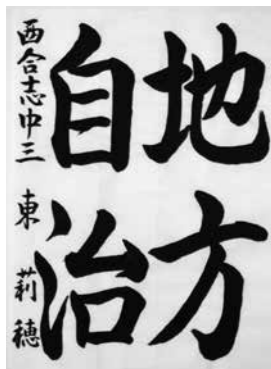 地方
自治
西合志中三 東 莉穂